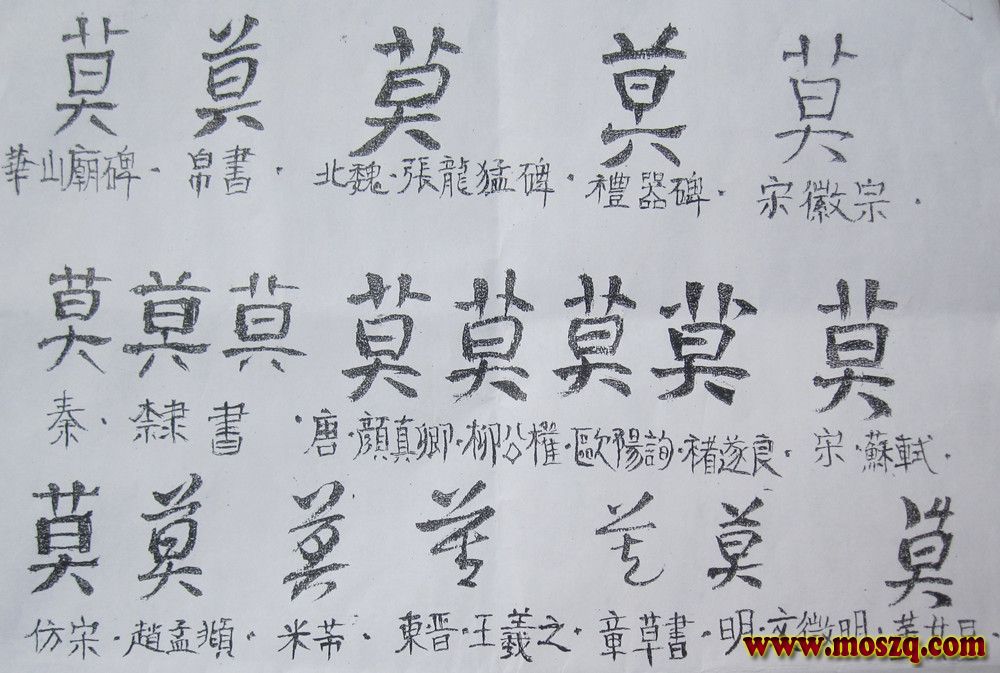 莫 莫 莫 莫 莫
華山廟碑．帛書．北魏．張龍猛碑．禮器碑．宋徽宗．
莫 莫 莫 莫 莫 莫 莫 莫
秦．隸書．唐．顏真卿．柳公權．歐陽詢．褚遂良．宋．蘇軾．
莫 莫 莫 莫 莫 莫 莫
仿宋．趙孟頫．米芾．東晋．王羲之．章草書．明．文徵明．
www.moszq.com